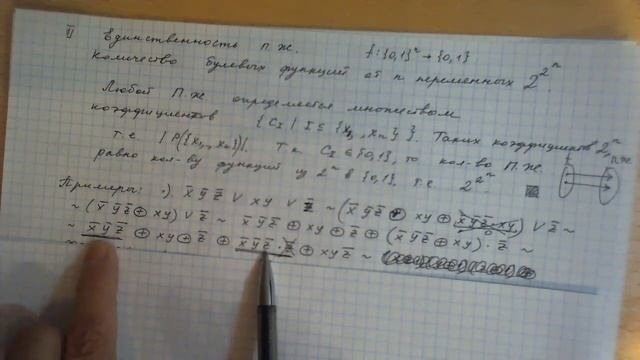 II Единственность п.ж. f:{0,1}ⁿ → {0,1}
Количество булевых функций от n переменных 2^2^n
Любой П.Ж определяется множеством
коэффициентов { C_I | I ⊆ {x₁, xₙ} }. Таких коэффициентов 2ⁿ
т.е. |P({x₁,.., xₙ})|. Т.к. C_I ∈ {0,1}, то кол-во П.Ж.
равно кол-ву функций из 2ⁿ в {0,1}, т.е. 2^2^n
f П.Ж.
Примеры: ·). x̄ ȳ z̄ ∨ xy ∨ z̄ ~ (x̄ ȳ z̄ ⊕ xy ⊕ x̄ȳz̄·xy) ∨ z̄ ~
0
~ (x̄ ȳ z̄ ⊕ xy) ∨ z̄ ~ x̄ ȳ z̄ ⊕ xy ⊕ z̄ ⊕ (x̄ ȳ z̄ ⊕ xy)·z̄ ~
~ x̄ ȳ z̄ ⊕ xy ⊕ z̄ ⊕ x̄ ȳ z̄ · z̄ ⊕ xy z̄ ~